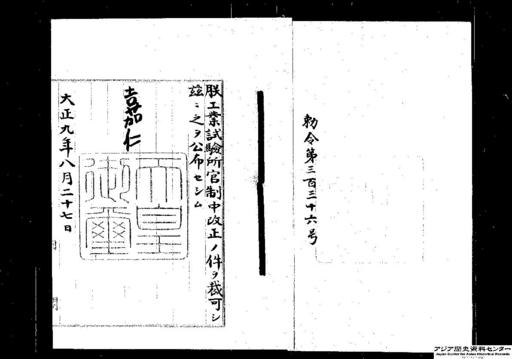 勅令第三百三十六号
朕工業試験所官制中改正ノ件ヲ裁可シ
茲ニ之ヲ公布セシム
嘉仁
天皇御璽
大正九年八月二十七日
アジア歴史資料センター
Japan Center for Asian Historical Records